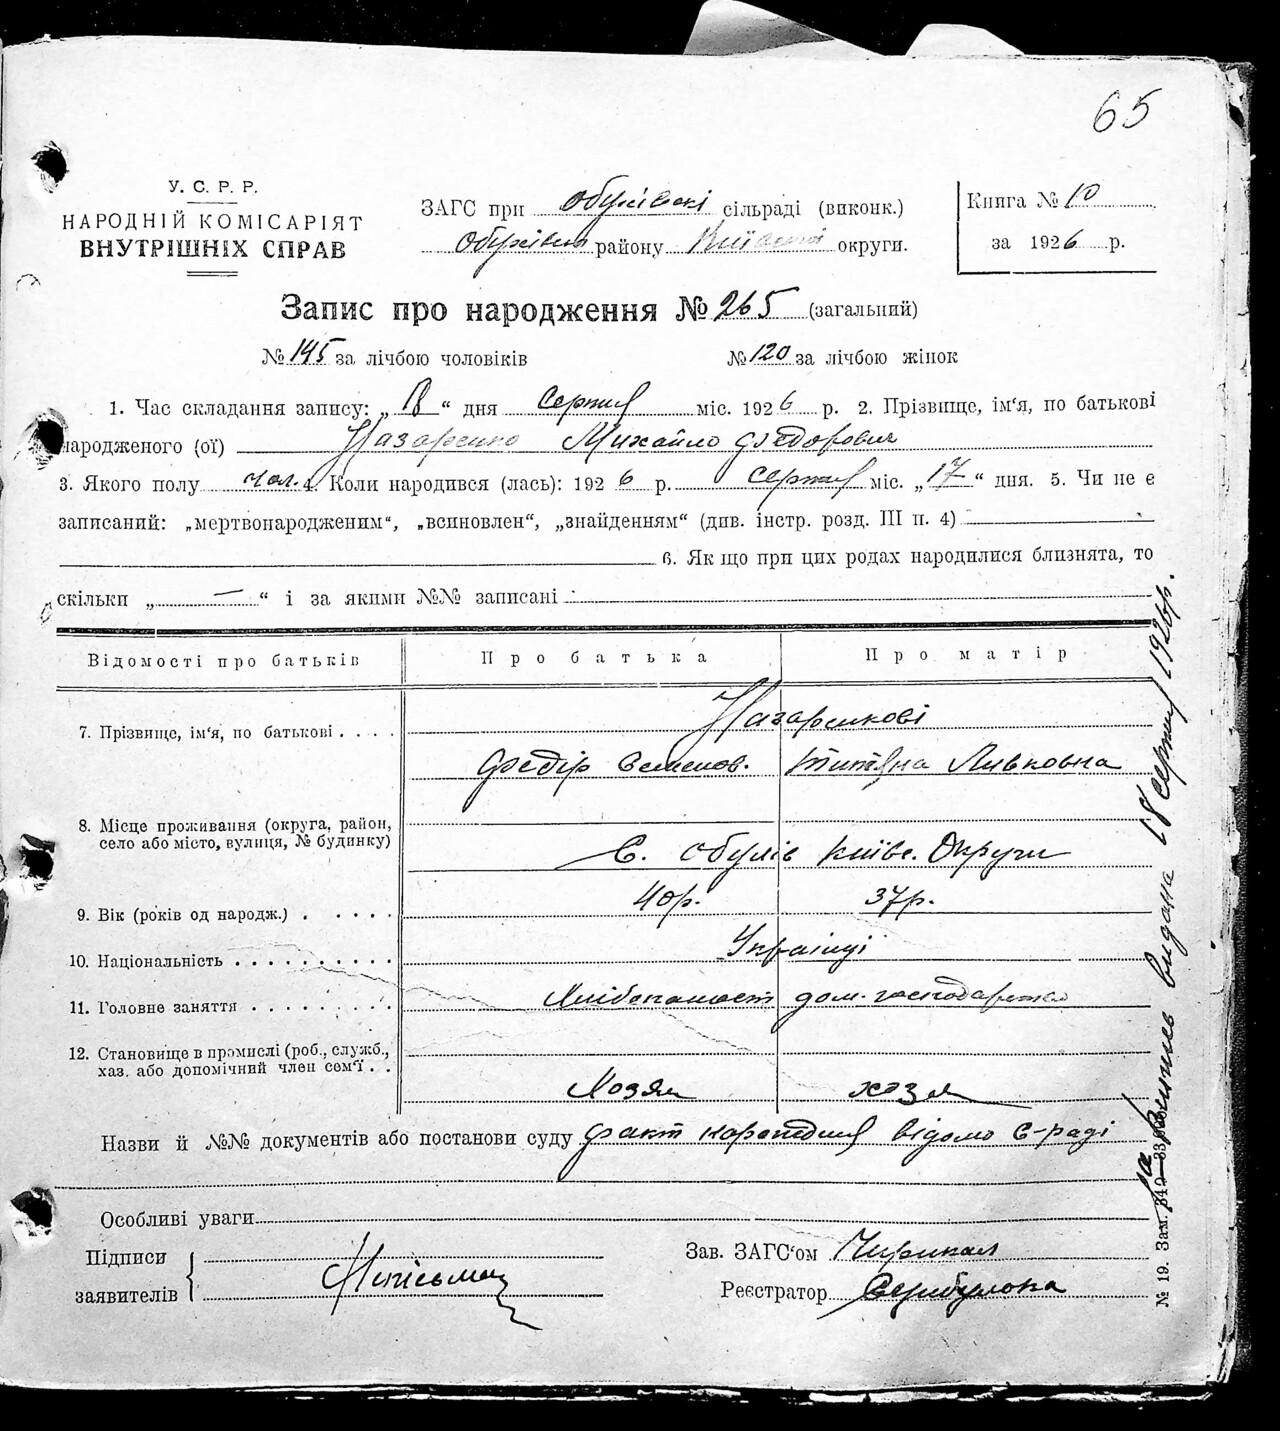 65
У. С. Р. Р.
НАРОДНІЙ КОМІСАРІЯТ
ВНУТРІШНІХ СПРАВ
ЗАГС при сільраді (виконк.)
району Київської округи.
Книга № 10
за 1926 р.
Запис про народження № 265 (загальний)
№ 145 за лічбою чоловіків № 120 за лічбою жінок
1. Час складання запису: „ “ дня Серпня міс. 1926 р. 2. Прізвище, ім‘я, по батькові
народженого (ої) Назаренко Михайло Федорович
3. Якого полу чол. 4. Коли народився (лась): 1926 р. серпня міс. „17“ дня. 5. Чи не є
записаний: „мертвонародженим“, „всиновлен“, „знайденням“ (див. інстр. розд. III п. 4)
6. Як що при цих родах народилися близнята, то
скільки „—“ і за якими №№ записані
Відомості про батьків Про батька Про матір
7. Прізвище, ім‘я, по батькові . . . . Назаренкові
Федір Семенов. Титяна Левковна
8. Місце проживання (округа, район,
село або місто, вулиця, № будинку) С. Київс. Округи
9. Вік (років од народж.) . . . . . 40р. 37р.
10. Національність . . . . . . . . . . Українці
11. Головне заняття . . . . . . . . . дом. господарство
12. Становище в промислі (роб., служб.,
хаз. або допомічний член сем‘ї . . Хозяїн хозя
Назви й №№ документів або постанови суду факт народження відомо С-раді
Особливі уваги
Підписи
заявителів
Неписьмен
Зав. ЗАГС‘ом
Реєстратор
№ 19. Зам.
Випись видана 18 серпня 1926р.